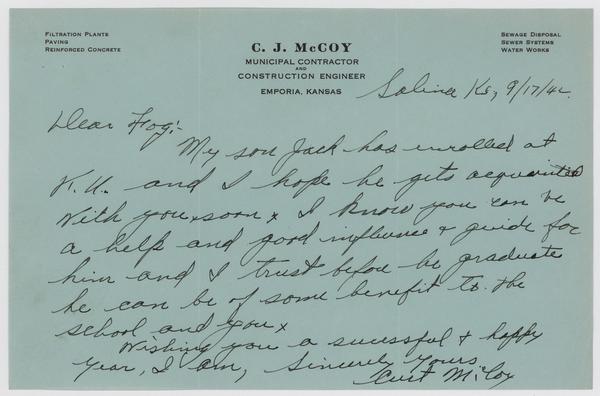 FILTRATION PLANTS
PAVING
REINFORCED CONCRETE
C. J. McCOY
MUNICIPAL CONTRACTOR
AND
CONSTRUCTION ENGINEER
EMPORIA, KANSAS
SEWAGE DISPOSAL
SEWER SYSTEMS
WATER WORKS
Salina Ks, 9/17/42.
Dear Fog:-
My son Jack has enrolled at
K.U. and I hope he gets acquainted
with you soon x I know you can be
a help and good influence & guide for
him and I trust before he graduate
he can be of some benefit to the
school and you x
Wishing you a sucessful & happy
year, I am, Sincerely yours
Curt McCoy